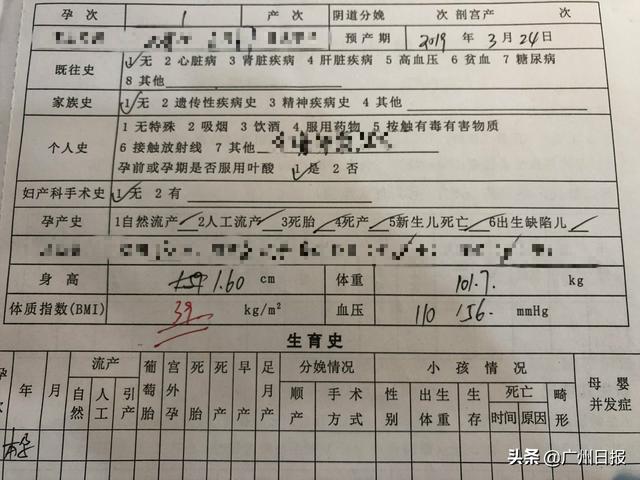 孕次 1 产次 阴道分娩 次 剖宫产 次
预产期 2019 年 3 月 24 日
既往史 1 无 2 心脏病 3 肾脏疾病 4 肝脏疾病 5 高血压 6 贫血 7 糖尿病
8 其他
家族史 1 无 2 遗传性疾病史 3 精神疾病史 4 其他
个人史 1 无特殊 2 吸烟 3 饮酒 4 服用药物 5 按触有毒有害物质
6 接触放射线 7 其他
孕前或孕期是否服用叶酸 1 是 2 否
妇产科手术史 1 无 2 有
孕产史 1自然流产 2人工流产 3死胎 4死产 5新生儿死亡 6出生缺陷儿
身高 1.60 cm 体重 101.7 kg
体质指数(BMI) 39 kg/m² 血压 110 mmHg
生育史
孕次 年 月 流产 葡萄胎 宫外孕 死胎 死产 早产 足月产 分娩情况 小孩情况 母婴并发症
自然 人工 引产 顺产 手术方式 性别 出生体重 生存 死亡 畸形
时间 原因
头条 @广州日报